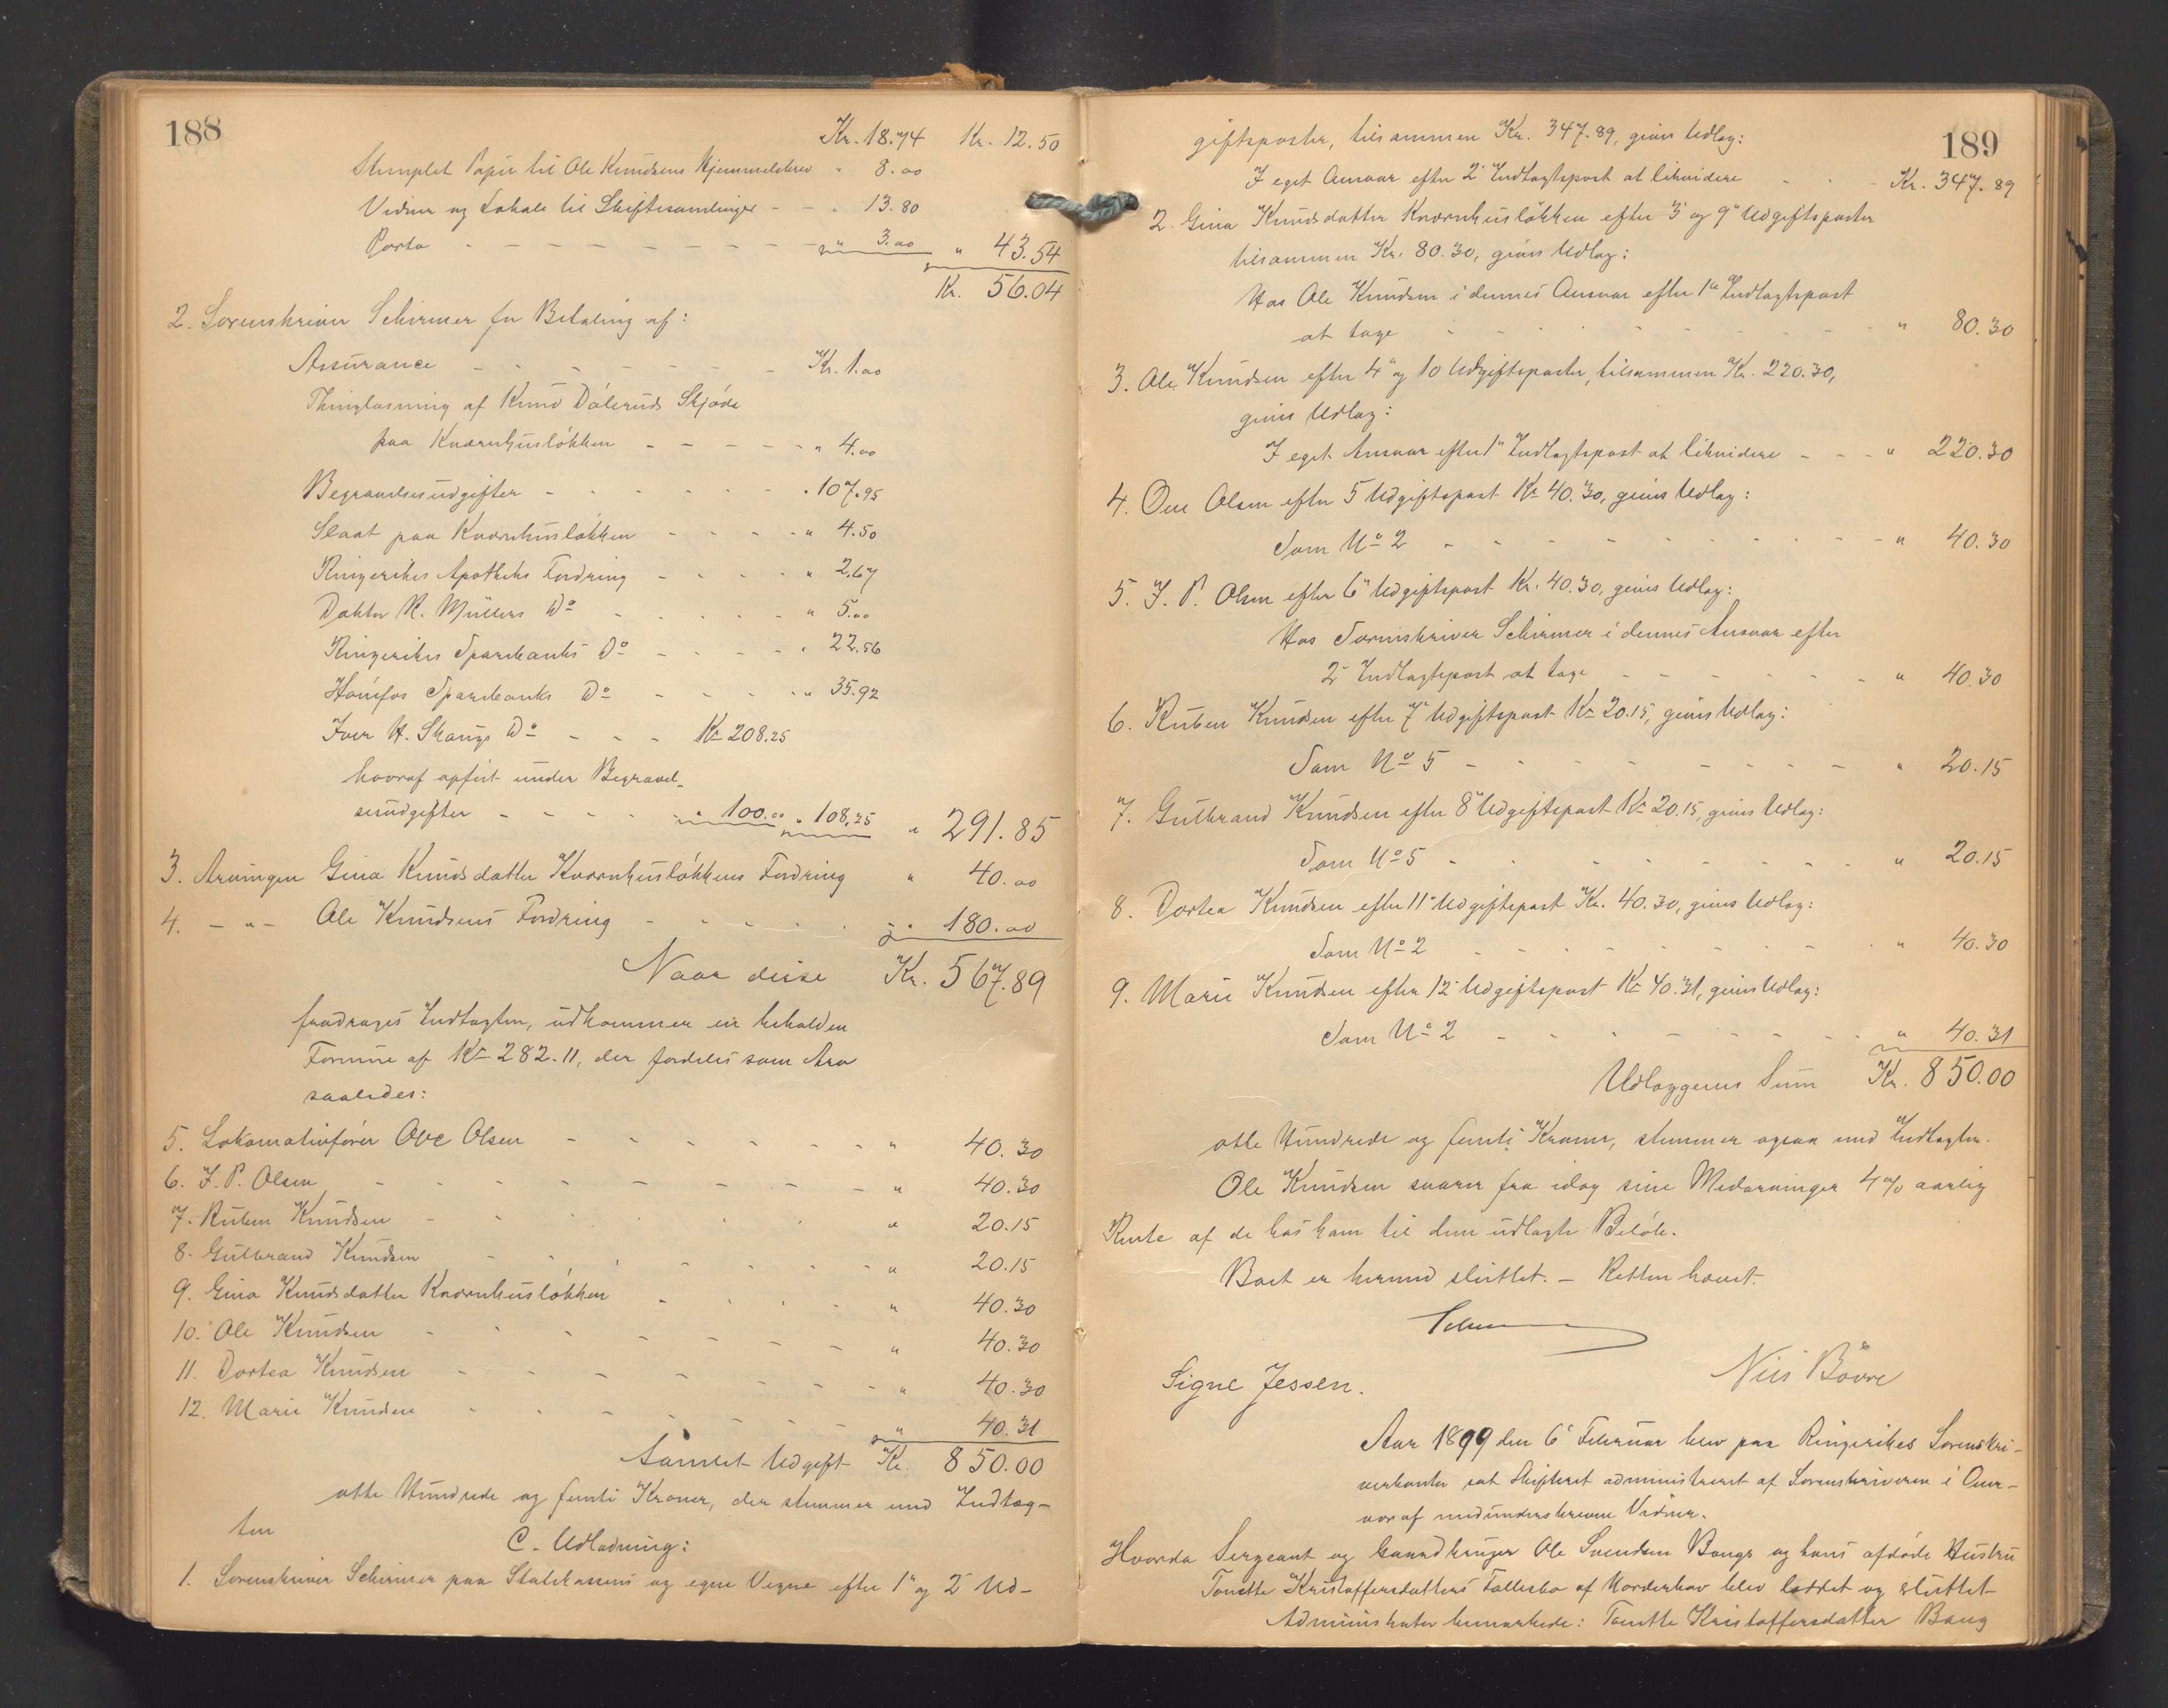 188
Kr. 18.74 Kr. 12.50
Stemplet Papir til Ole Knudsens Hjemmelsbrev " 8.00
Vidner og Lokale til Skiftesamlinger - - " 13.80
Porto - - - - - - - - - " 3.00 " 43.54
Kr. 56.04
2. Sorenskriver Schirmer for Betaling af:
Assurance - - - - - - - Kr. 1.00
Thinglæsning af Knud Døleruds Skjøde
paa Kværnhusløkken - - - - - " 4.00
Begravelsesudgifter - - - - - - " 107.95
Slaat paa Kværnhusløkken - - - - " 4.50
Ringerikes Apotheks Fordring - - - - " 2.67
Doktor R. Müllers Do - - - - - " 5.00
Ringerikes Sparebanks Do - - - - " 22.56
Hønefos Sparebanks Do - - - - " 35.92
Iver H. Skaugs Do - - - Kr 208.25
hvoraf opført under Begravel-
sesudgifter - - - - - " 100.00 " 108.25 " 291.85
3. Arvingen Gina Knudsdatter Kværnhusløkkens Fordring " 40.00
4. - " - Ole Knudsens Fordring - - - - - " 180.00
Naar disse Kr. 567.89
fradrages Indtægten, udkommer en beholden
Formue af Kr 282.11, der fordeles som Arv
saaledes:
5. Lokomotivfører Ove Olsen - - - - - - - " 40.30
6. J. P. Olsen - - - - - - - - " 40.30
7. Ruben Knudsen - - - - - - " 20.15
8. Gulbrand Knudsen - - - - - - " 20.15
9. Gina Knudsdatter Kværnhusløkken - - - - " 40.30
10. Ole Knudsen - - - - - - - " 40.30
11. Dortea Knudsen - - - - - - - " 40.30
12. Marie Knudsen - - - - - - - " 40.31
Samlet Udgift Kr. 850.00
otte Hundrede og femti Kroner, der stemmer med Indtæg-
ten
C. Udlodning:
1. Sorenskriver Schirmer paa Statskassens og egne Vegne efter 1" og 2" Ud-
189
giftsposter, tilsammen Kr. 347.89, gives Udlæg:
I eget Ansvar efter 2" Indtægtspost at likvidere - - - Kr. 347.89
2. Gina Knudsdatter Kværnhusløkken efter 3" og 9" Udgiftsposter
tilsammen Kr. 80.30, gives Udlæg:
Hos Ole Knudsen i dennes Ansvar efter 1ste Indtægtspost
at tage - - - - - - - - - " 80.30
3. Ole Knudsen efter 4" og 10 Udgiftsposter, tilsammen Kr. 220.30,
gives Udlæg:
I eget Ansvar efter 1" Indtægtspost at likvidere - - - " 220.30
4. Ove Olsen efter 5 Udgiftspost Kr 40.30, gives Udlæg:
Som No 2 - - - - - - - - - - " 40.30
5. J. P. Olsen efter 6" Udgiftspost Kr. 40.30, gives Udlæg:
Hos Sorenskriver Schirmer i dennes Ansvar efter
2" Indtægtspost at tage - - - - - - - " 40.30
6. Ruben Knudsen efter 7" Udgiftspost Kr 20.15, gives Udlæg:
Som No 5 - - - - - - - - - " 20.15
7. Gulbrand Knudsen efter 8" Udgiftspost Kr 20.15, gives Udlæg:
Som No 5 - - - - - - - - - " 20.15
8. Dortea Knudsen efter 11" Udgiftspost Kr. 40.30, gives Udlæg:
Som No 2 - - - - - - - - - " 40.30
9. Marie Knudsen efter 12" Udgiftspost Kr 40.31, gives Udlæg:
Som No 2 - - - - - - - - - " 40.31
Udlæggenes Sum Kr. 850.00
otte Hundrede og femti Kroner, stemmer ogsaa med Indtægten.
Ole Knudsen svarer fra idag sine Medarvinger 4 % aarlig
Rente af de hos ham til dem udlagte Beløb.
Boet er hermed sluttet. - Retten hævet.
Schirmer
Signe Jessen. Nils Bövre
Aar 1899 den 6" Februar blev paa Ringerikes Sorenskri-
verkontor sat Skifteret administreret af Sorenskriveren i Over-
vær af medunderskrevne Vidner.
Hvorda Sergeant og Gaardbruger Ole Svendsen Bangs og hans afdøde Hustru
Tonette Kristoffersdatters Fællesbo af Norderhov blev loddet og sluttet
Administrator bemærkede: Tonette Kristoffersdatter Bang